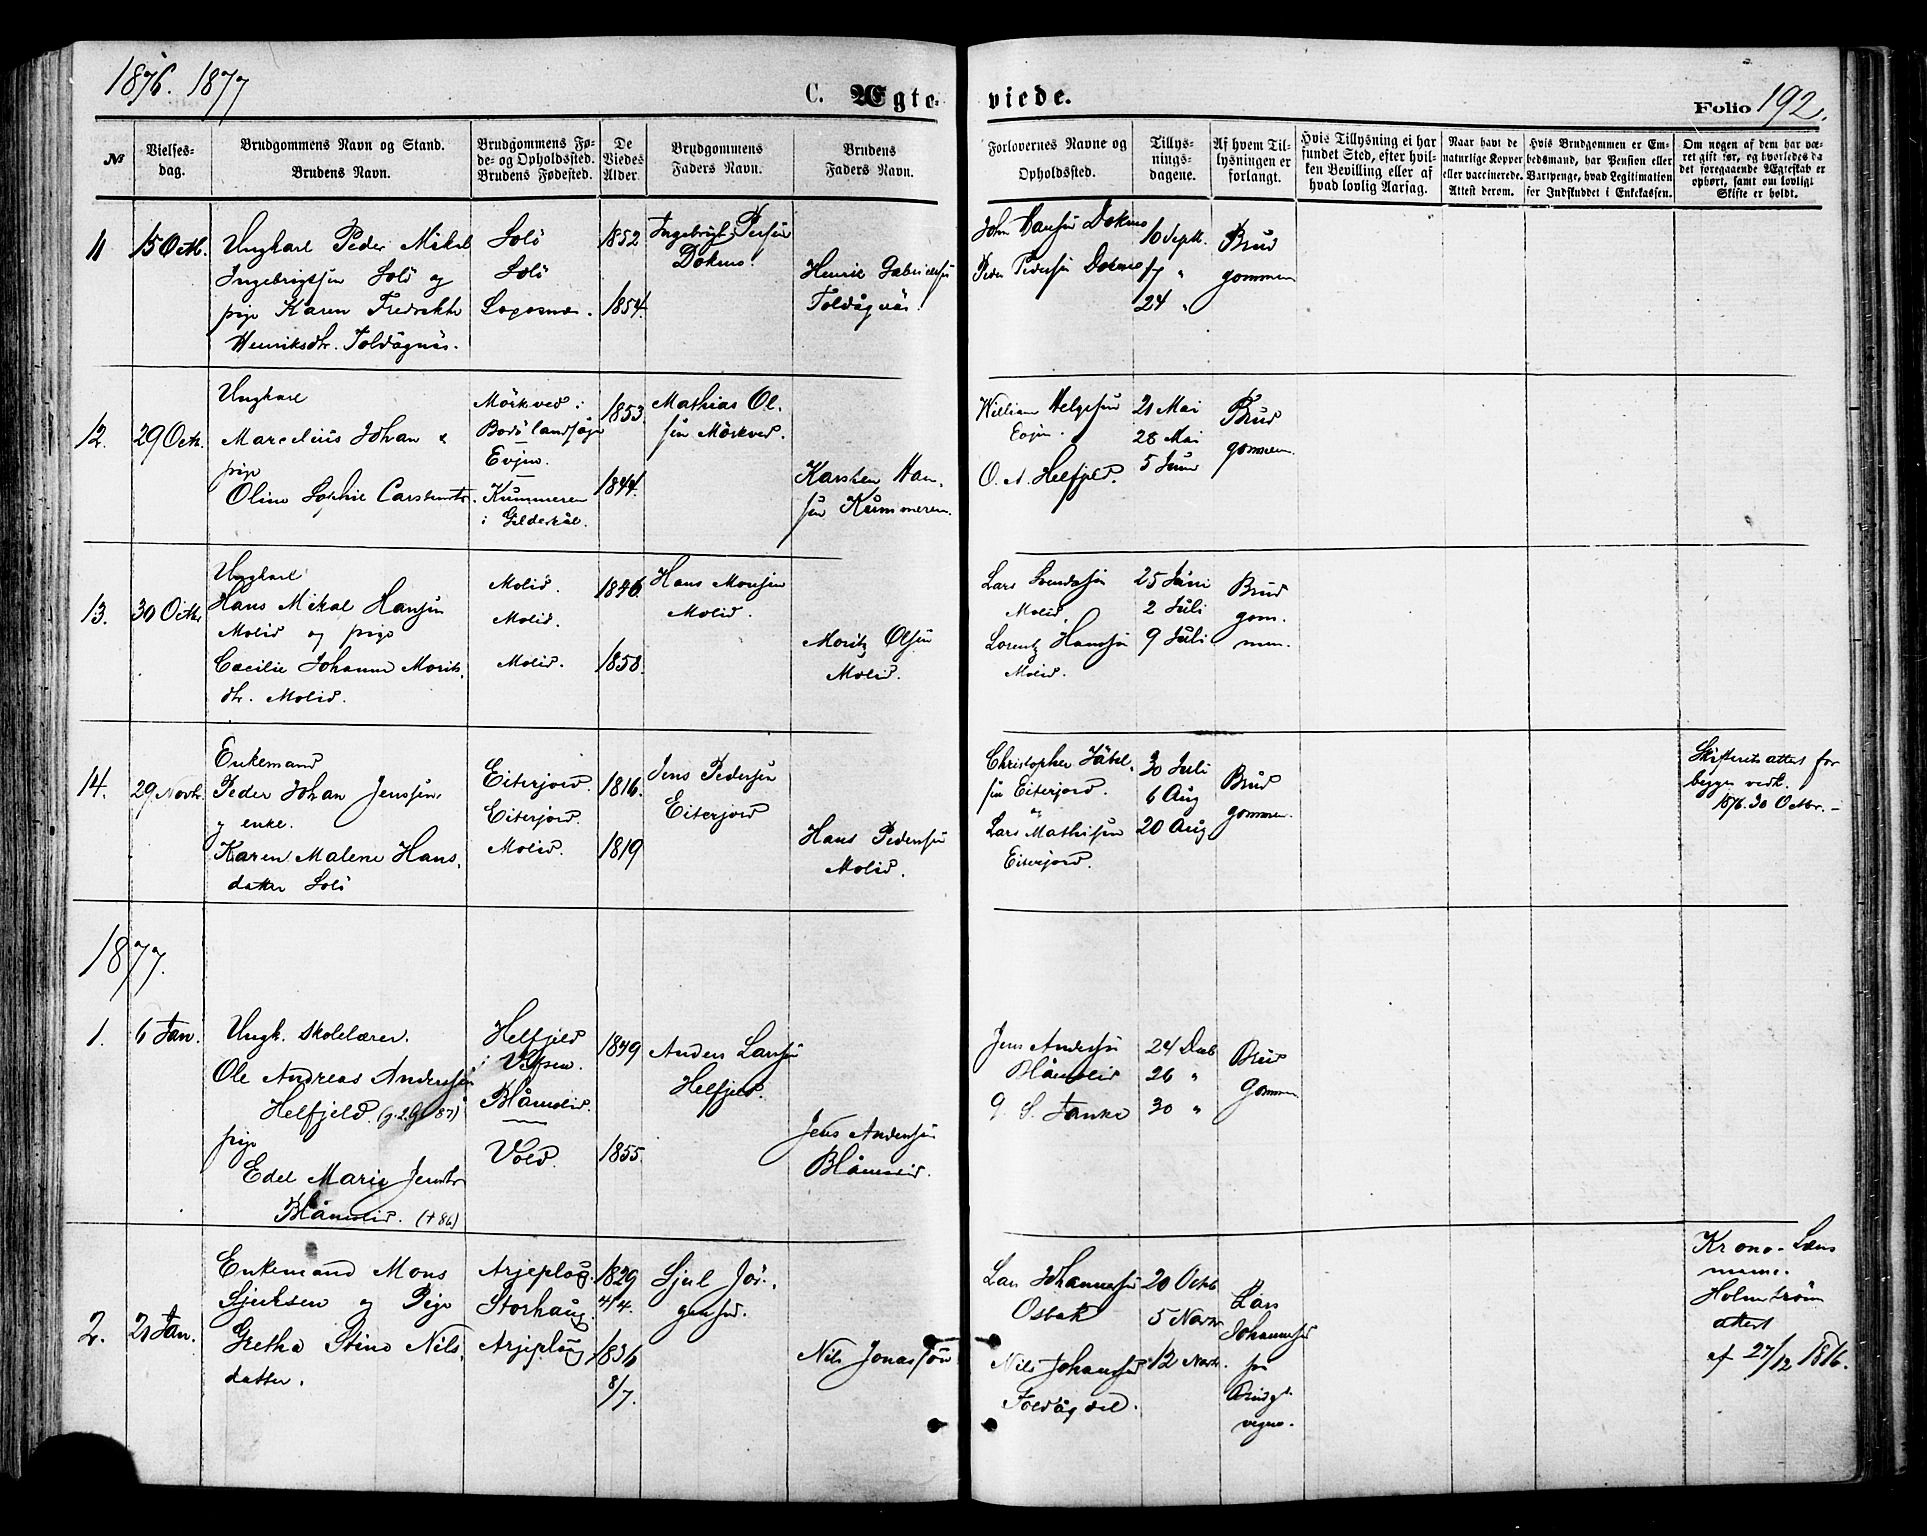 1876. 1877
C. Ægte-
viede.
Folio 192.
No
Vielses-
dag.
Brudgommens Navn og Stand.
Brudens Navn.
Brudgommens Fø-
de- og Opholdssted.
Brudens Fødested.
De
Viedes
Alder.
Brudgommens
Faders Navn.
Brudens
Faders Navn.
Forlovernes Navne og
Opholdssted.
Tillys-
nings-
dagene.
Af hvem Til-
lysningen er
forlangt.
Hvis Tillysning ei har
fundet Sted, efter hvil-
ken Bevilling eller af
hvad lovlig Aarsag.
Naar havt de
naturlige Kopper
eller vaccinerede.
Attest derom.
Hvis Brudgommen er Em-
bedsmand, har Pension eller
Vartpenge, hvad Legitimation
for Indskuddet i Enkekassen.
Om nogen af dem har væ-
ret gift før, og hvorledes da
det foregaaende Ægteskab er
ophørt, samt om lovligt
Skifte er holdt.
11
15 Octb.
Ungkarl Peder Mikal
Ingebrigtsen Solö og
pige Karen Fredrikke
Henriksdtr. Foldågnäs.
Solö
Solö
1852
1854.
Ingebrigt Persen
Dokmo.
Henrik Gabrielsen
Foldågnäs.
John Hansen Dokmo
Peder Pedersen Dokmo
10 Septb.
17 "
24 "
Brud
gommen
12.
29 Octb.
Ungkarl
Marcelius Johan &
pige
Oline Sophie Carstensdtr.
Mörkved i
Bodö landsogn
Evjen.
Kummeren
i Gildeskål.
1853.
1844.
Mathias Ol.
sen Mörkved.
Karsten Han.
sen Kummeren.
William Helgesen
Evjen.
O. A. Helfjeld.
21 Mai
28 Mai
5 Juni
Brud
gommen.
13.
30 Octb.
Ungkarl
Hans Mikal Hansen
Molid og pige
Cæcilie Johanna Morits.
dtr. Molid.
Molid.
Molid.
Molid.
1846.
1858.
Hans Monsen
Molid.
Moritz Olsen
Molid.
Lars Svendsen
Molid.
Lorentz Hansen
Molid.
25 Juni
2 Juli
9 Juli
Brud
gom.
men.
14.
29 Novbr.
Enkemand
Peder Johan Jensen
og enke.
Karen Malene Hans.
datter Solö
Eiterjord.
Eiterjord.
Molid.
1816.
1819
Jens Pedersen
Eiterjord
Hans Pedersen
Molid.
Christopher Jäbel.
sen Eiterjord.
og
Lars Mathisen
Eiterjord.
30 Juli
6 Aug
20 Aug
Brud
gommen.
Skifterets attest for
begge vedk.
1876. 30 Octbr. –
1877.
1.
6 Jan.
Ungk. Skolelærer.
Ole Andreas Andersen
Helfjeld. (g. 2. G. 87)
pige
Edel Marie Jensdtr
Blåmolid. († 86)
Helfjeld
i Vefsen.
Blåmolid.
Vold.
1849
1855.
Anders Larsen
Helfjeld.
Jens Andersen
Blåmolid.
Jens Andersen
Blåmolid
S. Tanke
24 Decb
26 "
30 "
Brud
gommen
2.
21 Jan.
Enkemand Mons
Sjulsen og Pige
Gretha Stina Nils.
datter.
Arjeploug.
Storhaug.
Arjeploug
1829
4/4.
1836
8/7.
Sjul Jör.
gensen.
Nils Jonassön
Lars Johannesen
Osbak
Nils Johansen
Foldågdal.
20 Octb
5 Novbr
12 Novbr.
Lars
Johannesen
på
Brudgs
vegne.
Krono-Læns
mann.
Holmström
attest
af 27/12 1876.